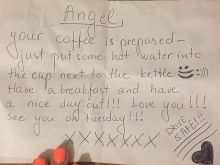 Angel,
your coffee is prepared –
just put some hot water into
the cup next to the kettle :)))
Have a breakfast and have
a nice day out!!! Love you!!!
See you on tuesday!!!
XXXXXXX
DRIVE
SAFE!!!